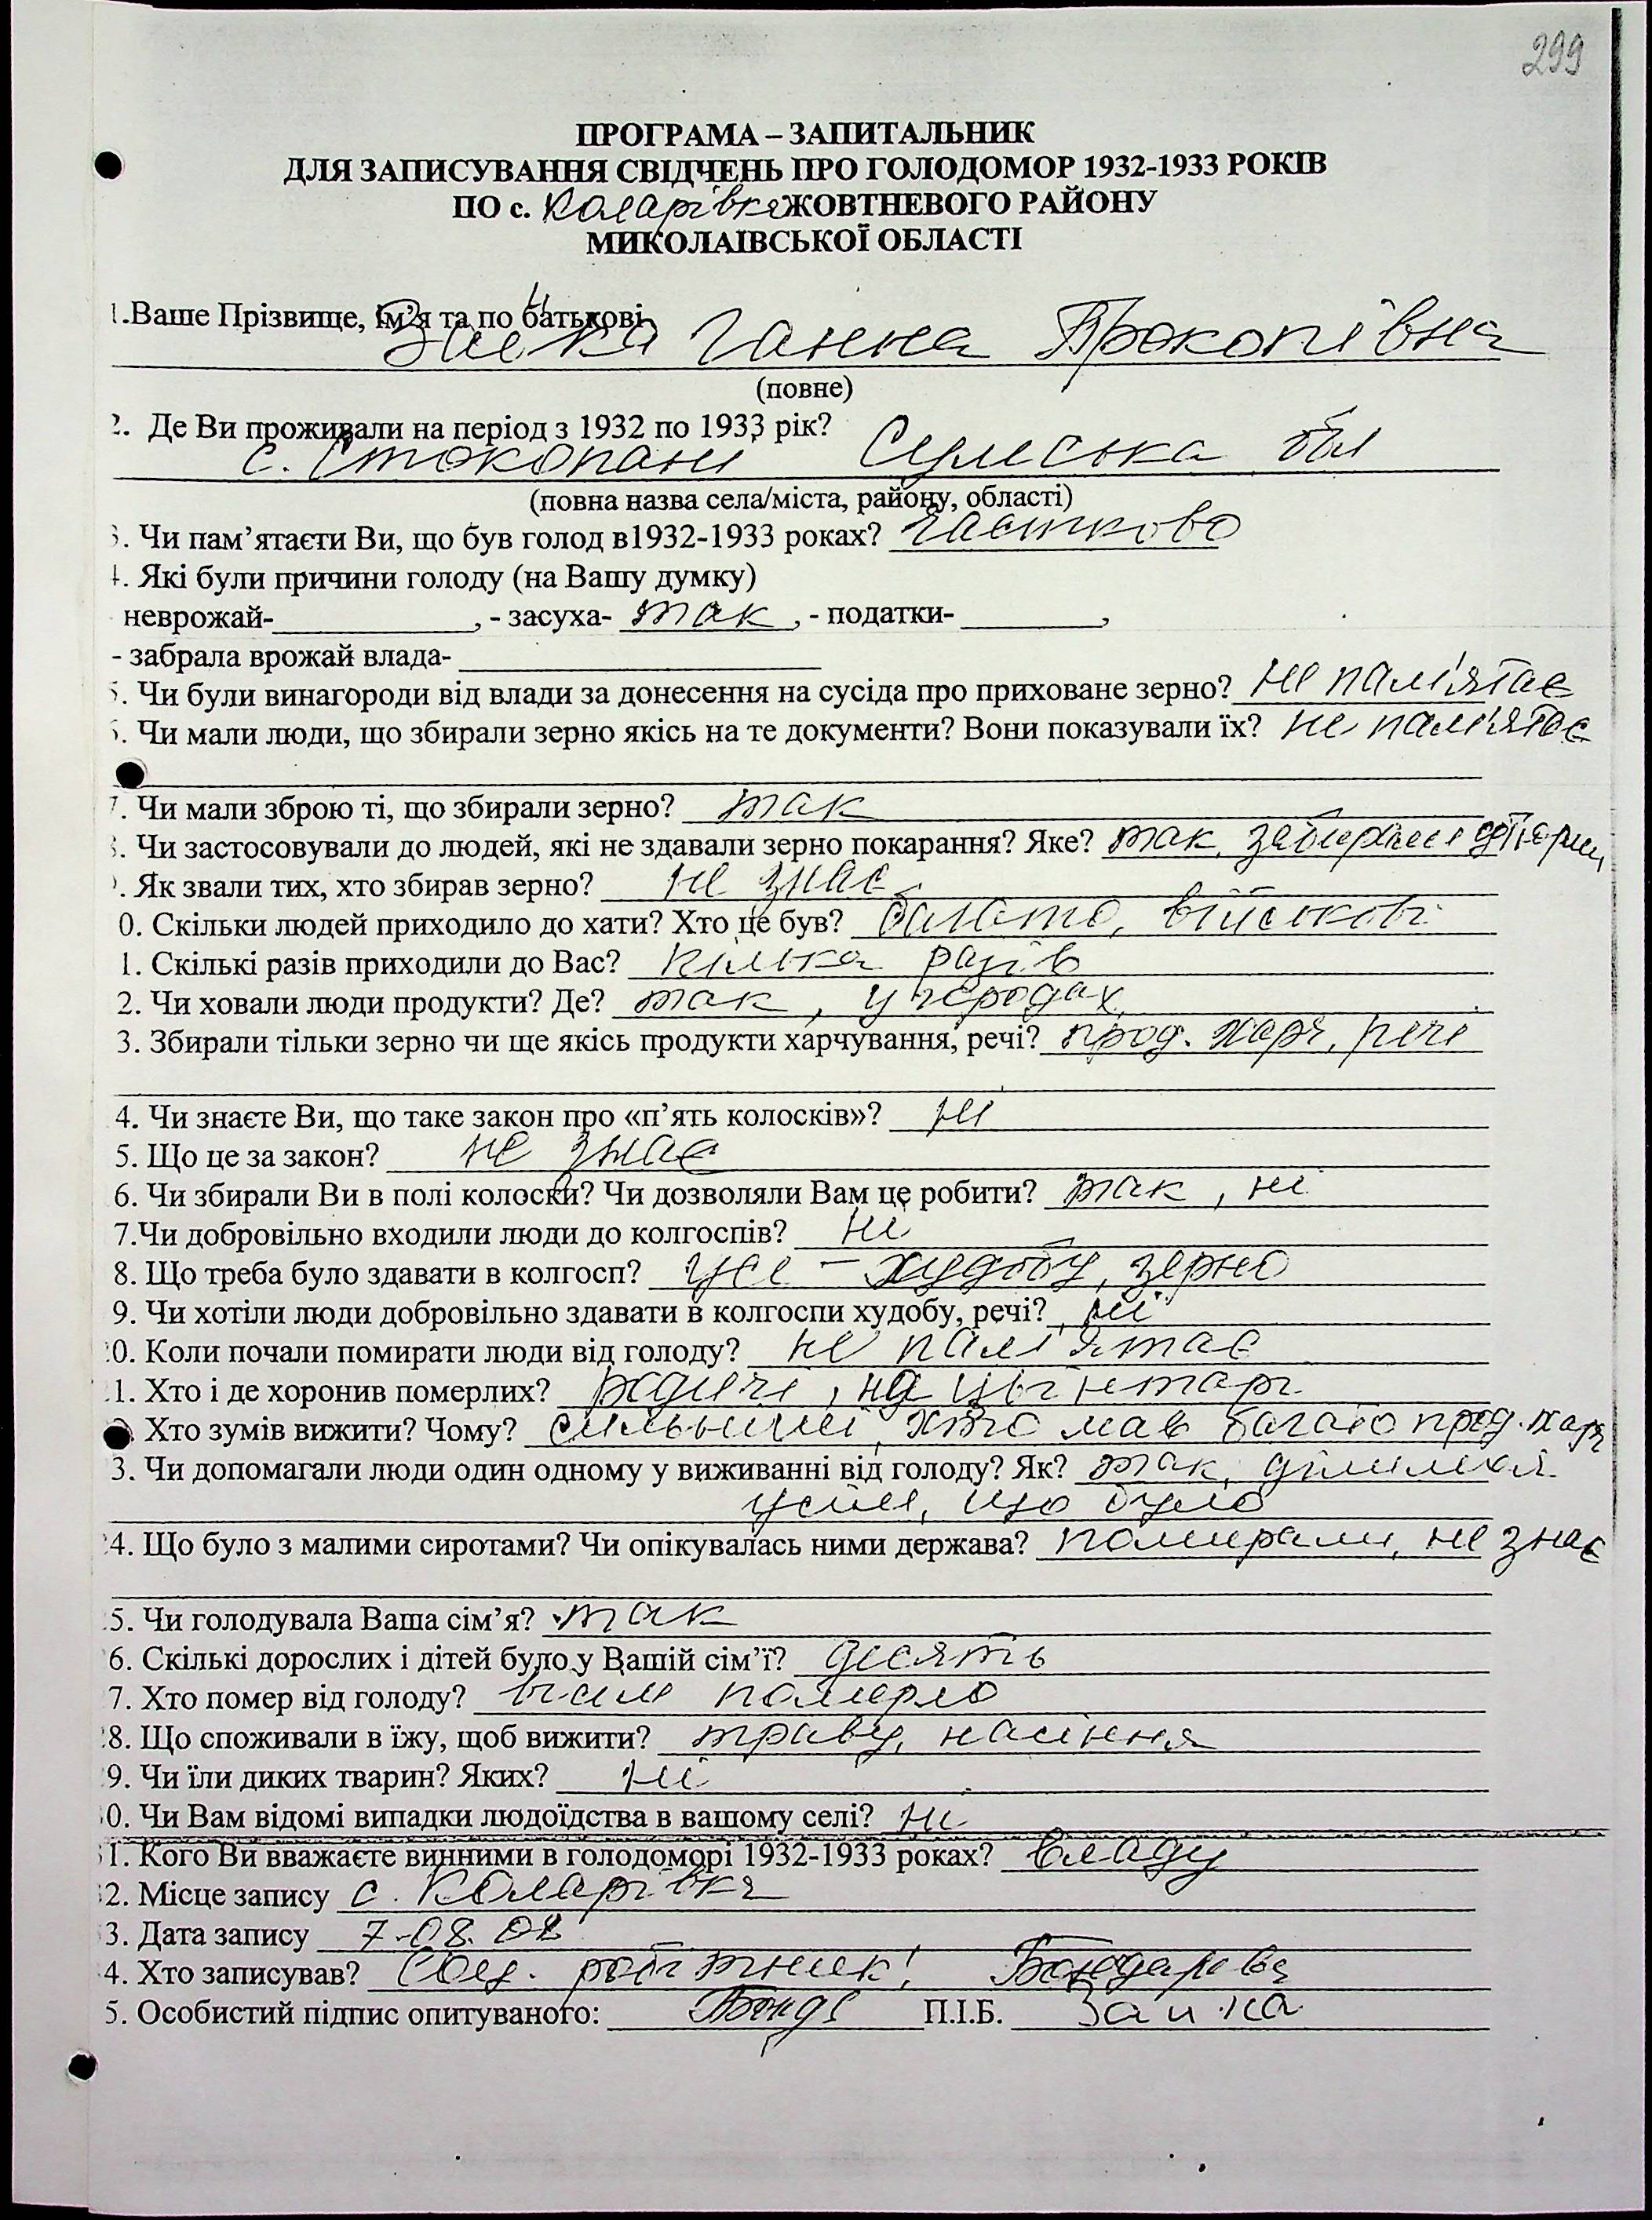 299
ПРОГРАМА – ЗАПИТАЛЬНИК
ДЛЯ ЗАПИСУВАННЯ СВІДЧЕНЬ ПРО ГОЛОДОМОР 1932-1933 РОКІВ
ПО с. Коларівка ЖОВТНЕВОГО РАЙОНУ
МИКОЛАЇВСЬКОЇ ОБЛАСТІ
1.Ваше Прізвище, Ім’я та по батькові
Заїка Ганна Прокопівна
(повне)
2. Де Ви проживали на період з 1932 по 1933 рік?
с. Сумська обл
(повна назва села/міста, району, області)
3. Чи пам’ятаєти Ви, що був голод в1932-1933 роках? частково
4. Які були причини голоду (на Вашу думку)
неврожай- , - засуха- так , - податки- ,
- забрала врожай влада-
5. Чи були винагороди від влади за донесення на сусіда про приховане зерно? не пам'ятає
6. Чи мали люди, що збирали зерно якісь на те документи? Вони показували їх? не пам'ятає
7. Чи мали зброю ті, що збирали зерно? так
8. Чи застосовували до людей, які не здавали зерно покарання? Яке? так, забирали
9. Як звали тих, хто збирав зерно? не знає
0. Скільки людей приходило до хати? Хто це був? багато, військові
1. Скількі разів приходили до Вас? кілька разів
2. Чи ховали люди продукти? Де? так, у городах
3. Збирали тільки зерно чи ще якісь продукти харчування, речі? прод. харч, речі
4. Чи знаєте Ви, що таке закон про «п’ять колосків»? ні
5. Що це за закон? не знає
6. Чи збирали Ви в полі колоски? Чи дозволяли Вам це робити? так, ні
7.Чи добровільно входили люди до колгоспів? ні
8. Що треба було здавати в колгосп? усе – худобу, зерно
9. Чи хотіли люди добровільно здавати в колгоспи худобу, речі? ні
0. Коли почали помирати люди від голоду? не пам'ятає
1. Хто і де хоронив померлих? родичі, на цвинтарі
Хто зумів вижити? Чому? сильніші, хто мав багато прод. харч
3. Чи допомагали люди один одному у виживанні від голоду? Як? так, ділилися
усім, що було
24. Що було з малими сиротами? Чи опікувалась ними держава? помирали, не знає
5. Чи голодувала Ваша сім’я? так
6. Скількі дорослих і дітей було у Вашій сім’ї? десять
7. Хто помер від голоду? вісім померло
28. Що споживали в їжу, щоб вижити? траву, насіння
9. Чи їли диких тварин? Яких? ні
0. Чи Вам відомі випадки людоїдства в вашому селі? ні
31. Кого Ви вважаєте винними в голодоморі 1932-1933 роках? владу
2. Місце запису с. Коларівка
3. Дата запису 7.08.08
4. Хто записував? Соц. робітник Бондарєва
5. Особистий підпис опитуваного: П.І.Б. Заїка